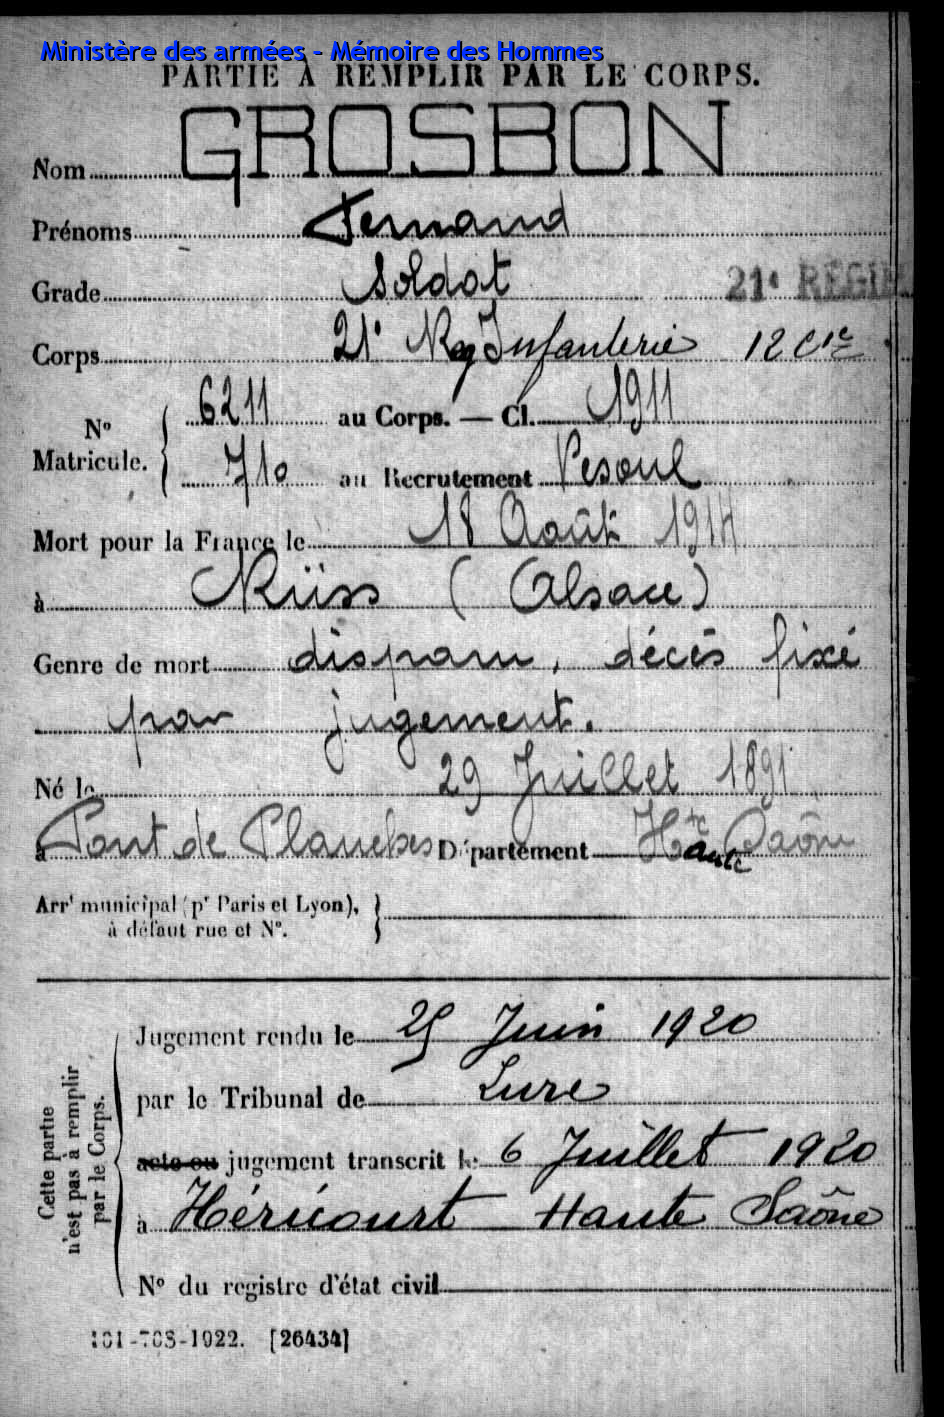 Ministère des armées - Mémoire des Hommes
PARTIE À REMPLIR PAR LE CORPS.
Nom GROSBON
Prénoms Fernand
Grade Soldat
21e RÉGIM
Corps 21e Rég Infanterie 12 Cie
N° Matricule. 6211 au Corps. — Cl. 1911
710 au Recrutement Vesoul
Mort pour la France le 18 Août 1914
à Nüss (Alsace)
Genre de mort disparu, décès fixé
par jugement.
Né le 29 Juillet 1891
à Pont de Planches Département Hte Saône
aute
Arrt municipal (pr Paris et Lyon),
à défaut rue et N°.
Cette partie
n'est pas à remplir
par le Corps.
Jugement rendu le 25 Juin 1920
par le Tribunal de Lure
acte ou jugement transcrit le 6 Juillet 1920
à Héricourt Haute Saône
N° du registre d'état civil
101-708-1922. [26434]